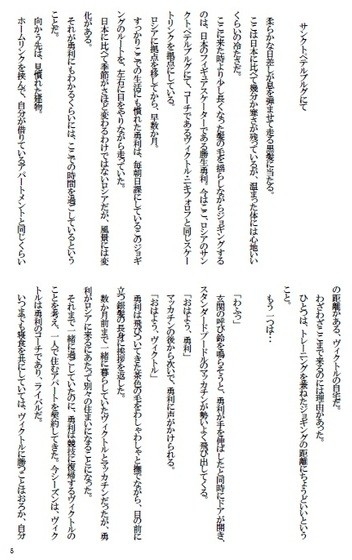 サンクトペテルブルクにて
柔らかな日差しが息を弾ませて走る黒髪に当たる。
ここは日本に比べて幾分か寒さが残っているが、温まった体には心地いい
くらいの冷たさだ。
ここに来た時より少し長くなった髪の毛を揺らしながらジョギングする
のは、日本のフィギュアスケーターである勝生勇利。今はここ、ロシアのサン
クトペテルブルクにて、コーチであるヴィクトル・ニキフォロフと同じスケー
トリンクを拠点にしている。
ロシアに拠点を移してから、早数か月。
すっかりここでの生活にも慣れた勇利は、毎朝日課にしているこのジョギ
ングのルートを、左右に目をやりながら走っていた。
日本に比べて季節がさほど変わるわけではないロシアだが、風景には変
化がある。
それが勇利にもわかるくらいには、ここでの時間を過ごしているという
ことだ。
向かう先は、見慣れた建物。
ホームリンクを挟んで、自分が借りているアパートメントと同じくらい
の距離がある。ヴィクトルの自宅だ。
わざわざここまで来るのには理由があった。
ひとつは、トレーニングを兼ねたジョギングの距離にちょうどいいという
こと。
もう一つは…
「わふっ」
玄関の呼び鈴を鳴らそうと、勇利が手を伸ばしたと同時にドアが開き、
スタンダードプードルのマッカチンが勢いよく飛び出してくる。
「おはよう、勇利」
マッカチンの後から続いて、勇利に声がかけられる。
「おはよう、ヴィクトル」
勇利は飛びついてきた茶色の毛をわしゃわしゃと撫でながら、目の前に
立つ銀髪の長身に挨拶を返した。
数か月前まで一緒に暮らしていたヴィクトルとマッカチンだったが、勇
利がロシアに来るにあたって別々の住まいになることになった。
それまで一緒に過ごしていたのに、勇利は競技に復帰するヴィクトルの
ことを考え、一人で住むアパートを契約してきた。今シーズンは、ヴィク
トルは勇利のコーチであり、ライバルだ。
いつまでも寝食を共にしていては、ヴィクトルに勝つことはおろか、自分
5